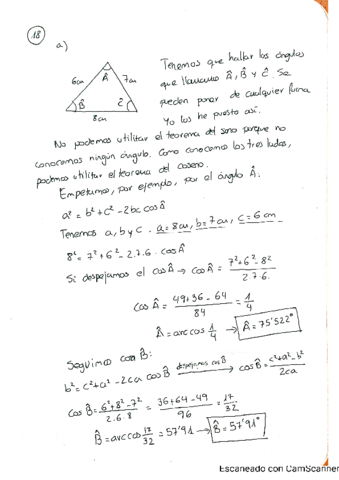 18
a)
Tenemos que hallar los ángulos
que llamamos Â, B̂ y Ĉ. Se
pueden poner de cualquier forma
Yo los he puesto así.
6cm Â 7cm
B̂ Ĉ
8cm
No podemos utilizar el teorema del seno porque no
conocemos ningún ángulo. Como conocemos los tres lados,
podemos utilizar el teorema del coseno.
Empezamos, por ejemplo, por el ángulo Â:
a² = b² + c² - 2bc cos Â
Tenemos a, b y c. a = 8cm, b = 7cm, c = 6cm
8² = 7² + 6² - 2·7·6. cos Â
Si despejamos el cos Â → cos Â = 7² + 6² - 8² / 2·7·6.
cos Â = 49 + 36 - 64 / 84 = 1/4
Â = arc cos 1/4 → Â = 75'522°
Seguimos con B̂:
b² = c² + a² - 2ca cos B̂ despejamos cos B̂ → cos B̂ = c² + a² - b² / 2ca
cos B̂ = 6² + 8² - 7² / 2·6·8 = 36 + 64 - 49 / 96 = 17/32
B̂ = arc cos 17/32 = 57'91 → B̂ = 57'91°
Escaneado con CamScanner